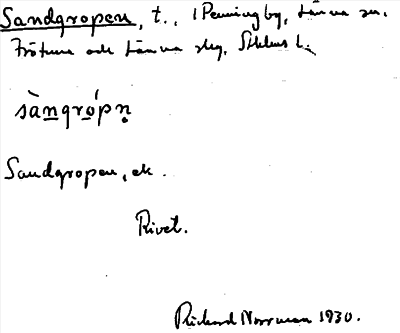 Sandgropen, t., i Penningby, Länna sn.
Frötuna och Länna skg, Sthlms l.
sàngrópn̥
Sandgropen, ek.
Rivet.
Richard Norrman 1930.